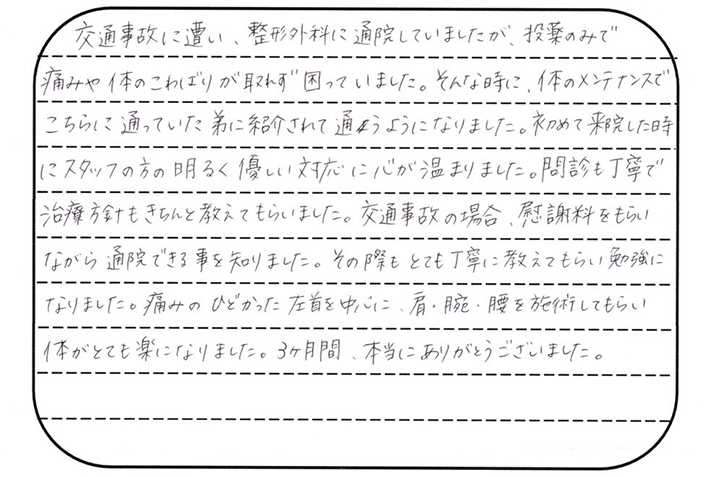 交通事故に遭い、整形外科に通院していましたが、投薬のみで
痛みや体のこわばりが取れず困っていました。そんな時に、体のメンテナンスで
こちらに通っていた弟に紹介されて通うようになりました。初めて来院した時
にスタッフの方の明るく優しい対応に心が温まりました。問診も丁寧で
治療方針もきちんと教えてもらいました。交通事故の場合、慰謝料をもらい
ながら通院できる事を知りました。その際もとても丁寧に教えてもらい勉強に
なりました。痛みのひどかった左首を中心に、肩・腕・腰を施術してもらい
体がとても楽になりました。3ヶ月間、本当にありがとうございました。